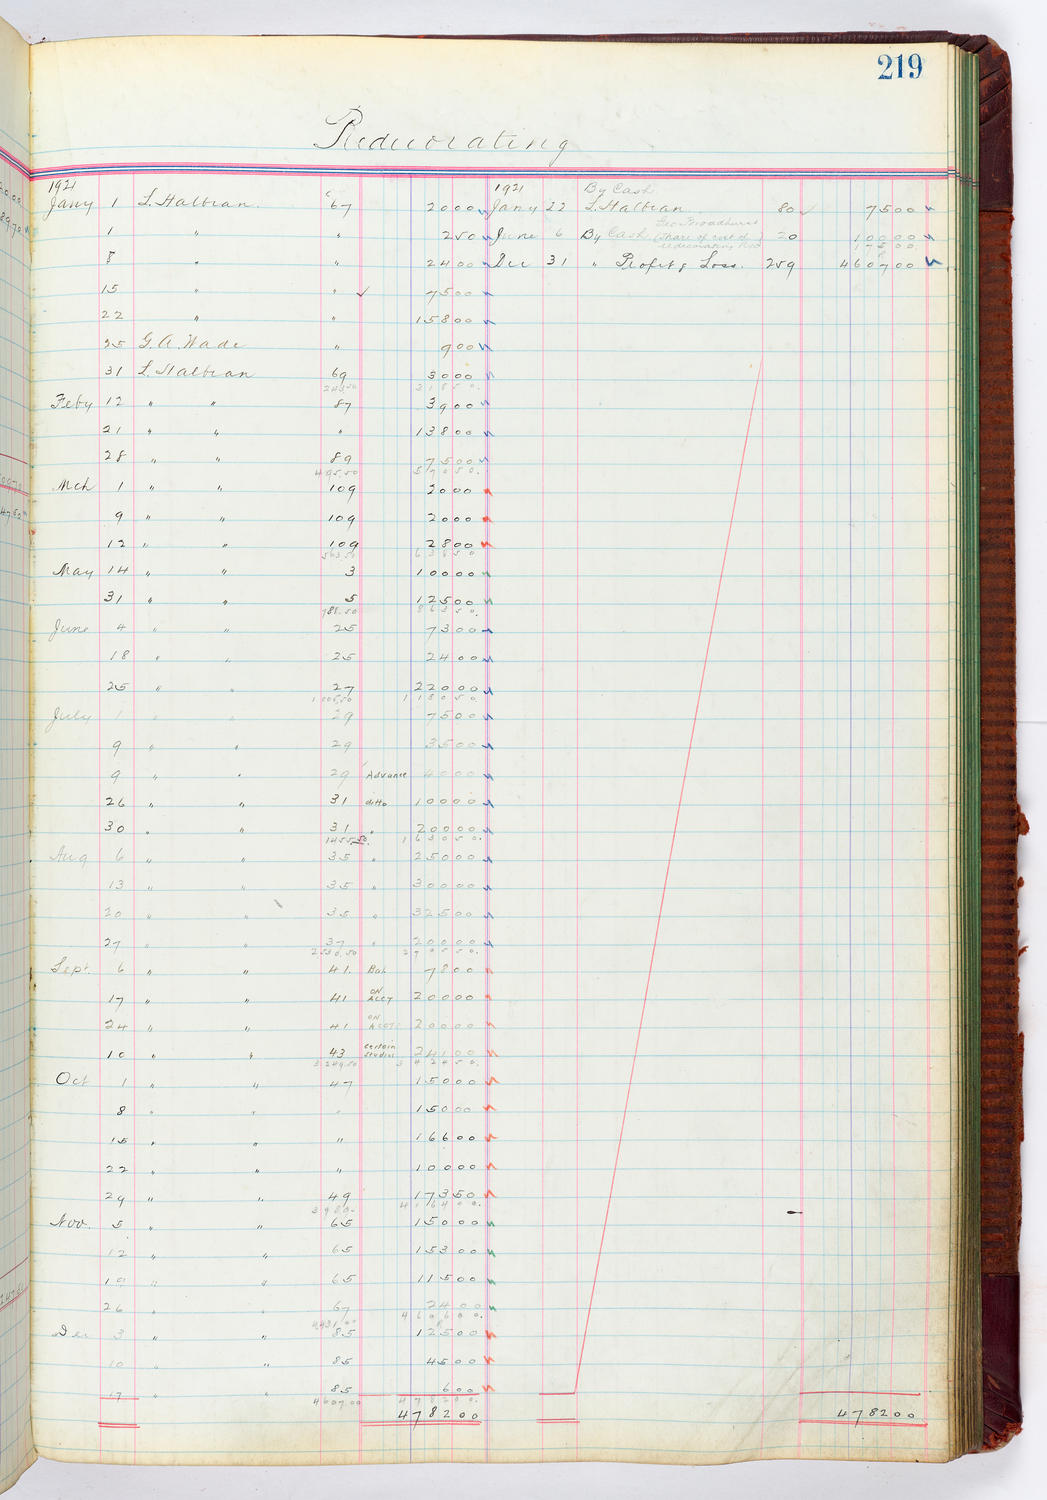 219
Redecorating
1921 1921 By Cash
Jany 1 L. Halbran. C 67 20 00 Jany 22 L. Halbran 80 ✓ 75 00
1 " " 2 50 June 6 By Cash (Geo Broadhurst share of cost of redecorating roo ) 20 100 00
175 00
8 " " 24 00 Dec 31 " Profit & Loss. 259 4607 00
15 " " ✓ 75 00
22 " " 158 00
25 G. A. Wade " 9 00
31 L. Halbran 69 30 00
243.50 318 50.
Feby 12 " " 87 39 00
21 " " " 138 00
28 " " 89 75 00
495.50 570 50.
Mch 1 " " 109 20 00
9 " " 109 20 00
12 " " 109 28 00
563.50 638 50
May 14 " " 3 100 00
31 " " 5 125 00
788.50 863 50.
June 4 " " 25 73 00
18 " " 25 24 00
25 " " 27 220 00
1180 50.
July 1 " " 29 75 00
9 " " 29 35 00
9 " " 29 Advance 40 00
26 " " 31 ditto 100 00
30 " " 31 " 200 00
1455.50. 1630 50.
Aug 6 " " 35 " 250 00
13 " " 35 " 300 00
20 " " 35 " 325 00
27 " " 37 " 200 00
2530.50 2705 50.
Sept. 6 " " 41. Bal. 78 00
17 " " 41 ON ACCT 200 00
24 " " 41 ON ACCT 200 00
10 " " 43 certain studios 241 00
3249.50 3424 50.
Oct 1 " " 47 150 00
8 " " " 150 00
15 " " " 166 00
22 " " " 100 00
29 " " 49 173 50
4164 00.
Nov. 5 " " 65 150 00
12 " " 65 153 00
19 " " 65 115 00
26 " " 67 24 00
4431.00 4606 00.
Dec 3 " " 85 125 00
10 " " 85 45 00
17 " " 85 6 00
4607.00 4782 00.
4782 00 4782 00